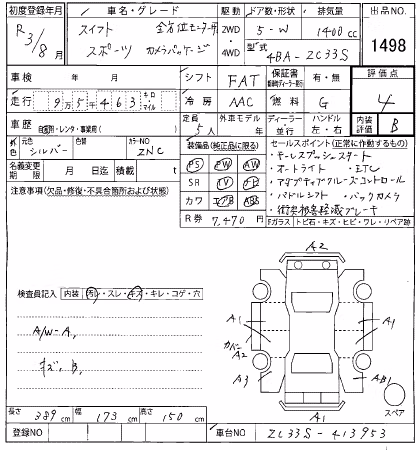 初度登録年月 車名・グレード 駆動 ドア数・形状 排気量 出品NO.
R3/8月 スイフト 全方位モニター用 2WD 5-W 1400cc 1498
スポーツ カメラパッケージ 4WD 型式 4BA-ZC33S
車検 年 月 シフト FAT 保証書 有・無 評価点
走行 9万5千463 キロ マイル 冷房 AAC 燃料 G 4
車歴 自家用・レンタ・事業用( ) 定員 5人 外車モデル 年 ディーラー・並行 ハンドル 左・右 内装評価 B
外色 元色 シルバー 色替 カラーNO ZNC 装備品(純正品に限る) セールスポイント(正常に作動するもの)
名義変更期限 月 日迄 積載 t PS PW AW ・キーレスプッシュスタート
注意事項(欠品・修復・不具合箇所および状態) SR TV ナビ ・オートライト ・ETC
カワ エアB ABS ・アダプティブクルーズコントロール
・パドルシフト ・バックカメラ
・衝突被害軽減ブレーキ
R券 7,470円 Fガラス トビ石・キズ・ヒビ・ワレ・リペア跡
A2
検査員記入 内装 汚レ・スレ・キズ・キレ・コゲ・穴
A1 A1
A/W-A, カバー A2
キズ, B, A3 AB1
スペア
A1
長さ 389cm 幅 173cm 高さ 150cm
登録NO 車台NO ZC33S-413953